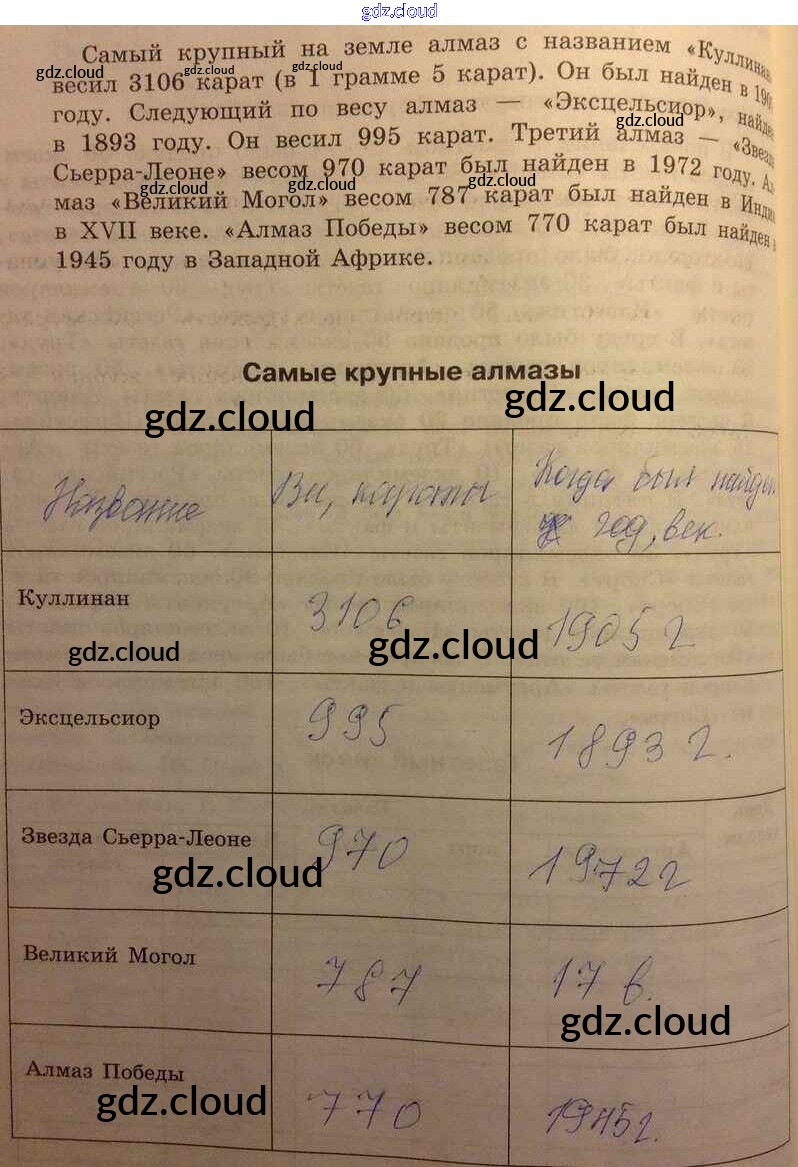 gdz.cloud
Самый крупный на земле алмаз с названием «Куллинан
весил 3106 карат (в 1 грамме 5 карат). Он был найден в 190
году. Следующий по весу алмаз — «Эксцельсиор», найде
в 1893 году. Он весил 995 карат. Третий алмаз — «Звезда
Сьерра-Леоне» весом 970 карат был найден в 1972 году. Ал
маз «Великий Могол» весом 787 карат был найден в Индии
в XVII веке. «Алмаз Победы» весом 770 карат был найден в
1945 году в Западной Африке.
gdz.cloud
gdz.cloud
gdz.cloud
gdz.cloud
gdz.cloud
gdz.cloud
Самые крупные алмазы
gdz.cloud
gdz.cloud
Название
Вес, караты
Когда был найден
год, век.
Куллинан
3106
1905 г
gdz.cloud
gdz.cloud
Эксцельсиор
995
1893 г.
Звезда Сьерра-Леоне
970
1972 г
gdz.cloud
Великий Могол
787
17 в.
gdz.cloud
Алмаз Победы
770
1945 г.
gdz.cloud